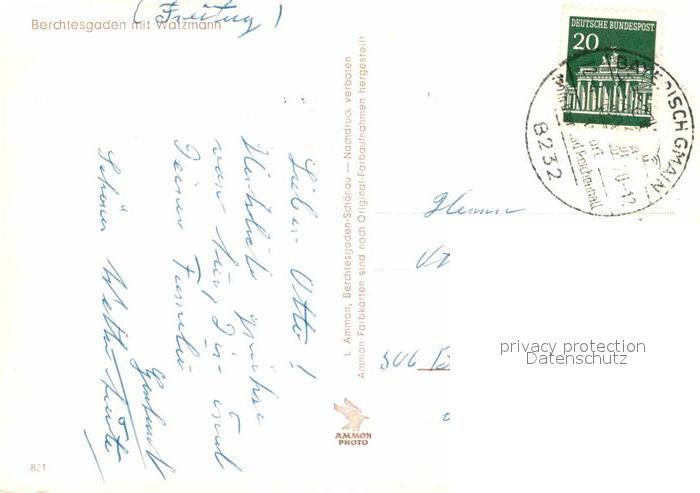 (Freitag)
Berchtesgaden mit Watzmann
Lieber Otto!
Herzliche Grüße
von hier, Dir und
Deiner Familie
Gerhard
Schönes Wetter heute
L. Ammon, Berchtesgaden-Schönau — Nachdruck verboten
Ammon Farbkarten sind nach Original-Farbaufnahmen hergestellt
AMMON
PHOTO
821
DEUTSCHE BUNDESPOST
20
BAYERISCH GMAIN
8232
Bad Reichenhall
Herrn
privacy protection
Datenschutz